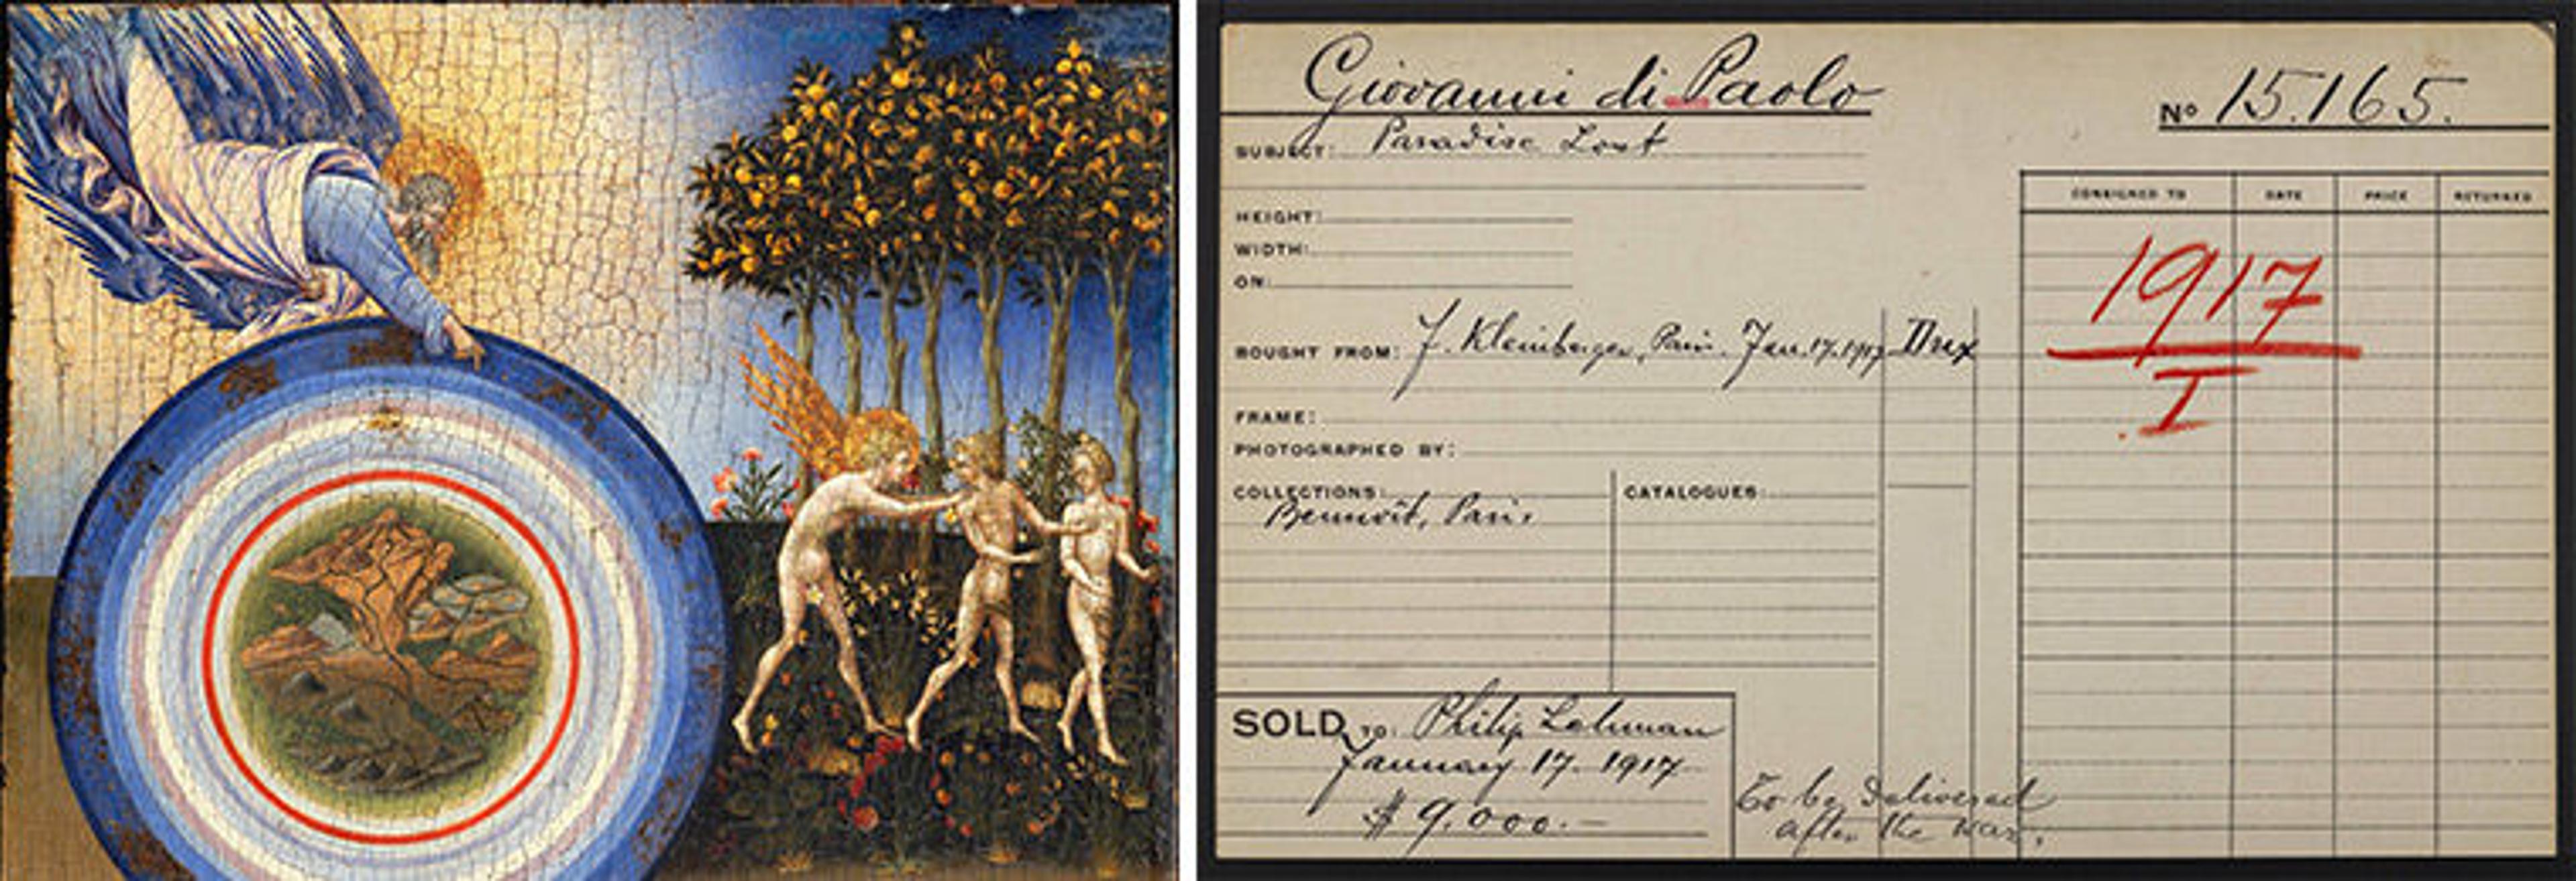 Giovanni di Paolo
Nº 15.165.
SUBJECT: Paradise Lost
CONSIGNED TO DATE PRICE RETURNED
HEIGHT:
WIDTH:
ON:
1917
I
BOUGHT FROM: F. Kleinberger, Paris. Jan. 17. 1917
FRAME:
PHOTOGRAPHED BY:
COLLECTIONS: CATALOGUES:
Bennoît, Paris
SOLD TO: Philip Lehman
January 17. 1917
$ 9.000.—
To be delivered
after the war.